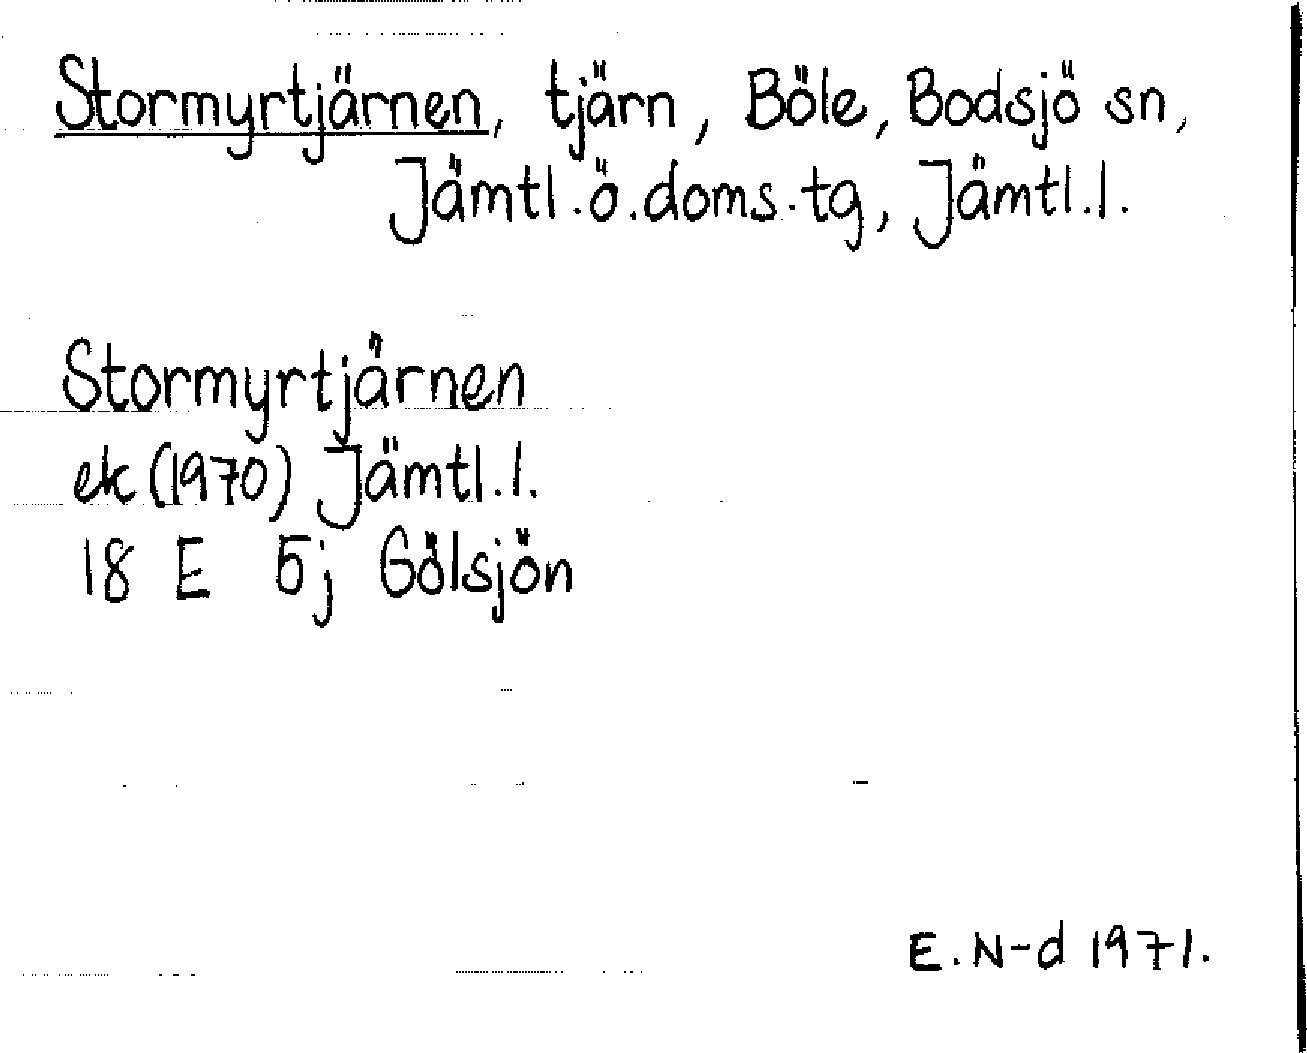 Stormyrtjärnen, tjärn, Böle, Bodsjö sn,
Jämtl.ö.doms.tg, Jämtl.l.
Stormyrtjärnen
ek (1970) Jämtl.l.
18 E 5j Gölsjön
E. N-d 1971.